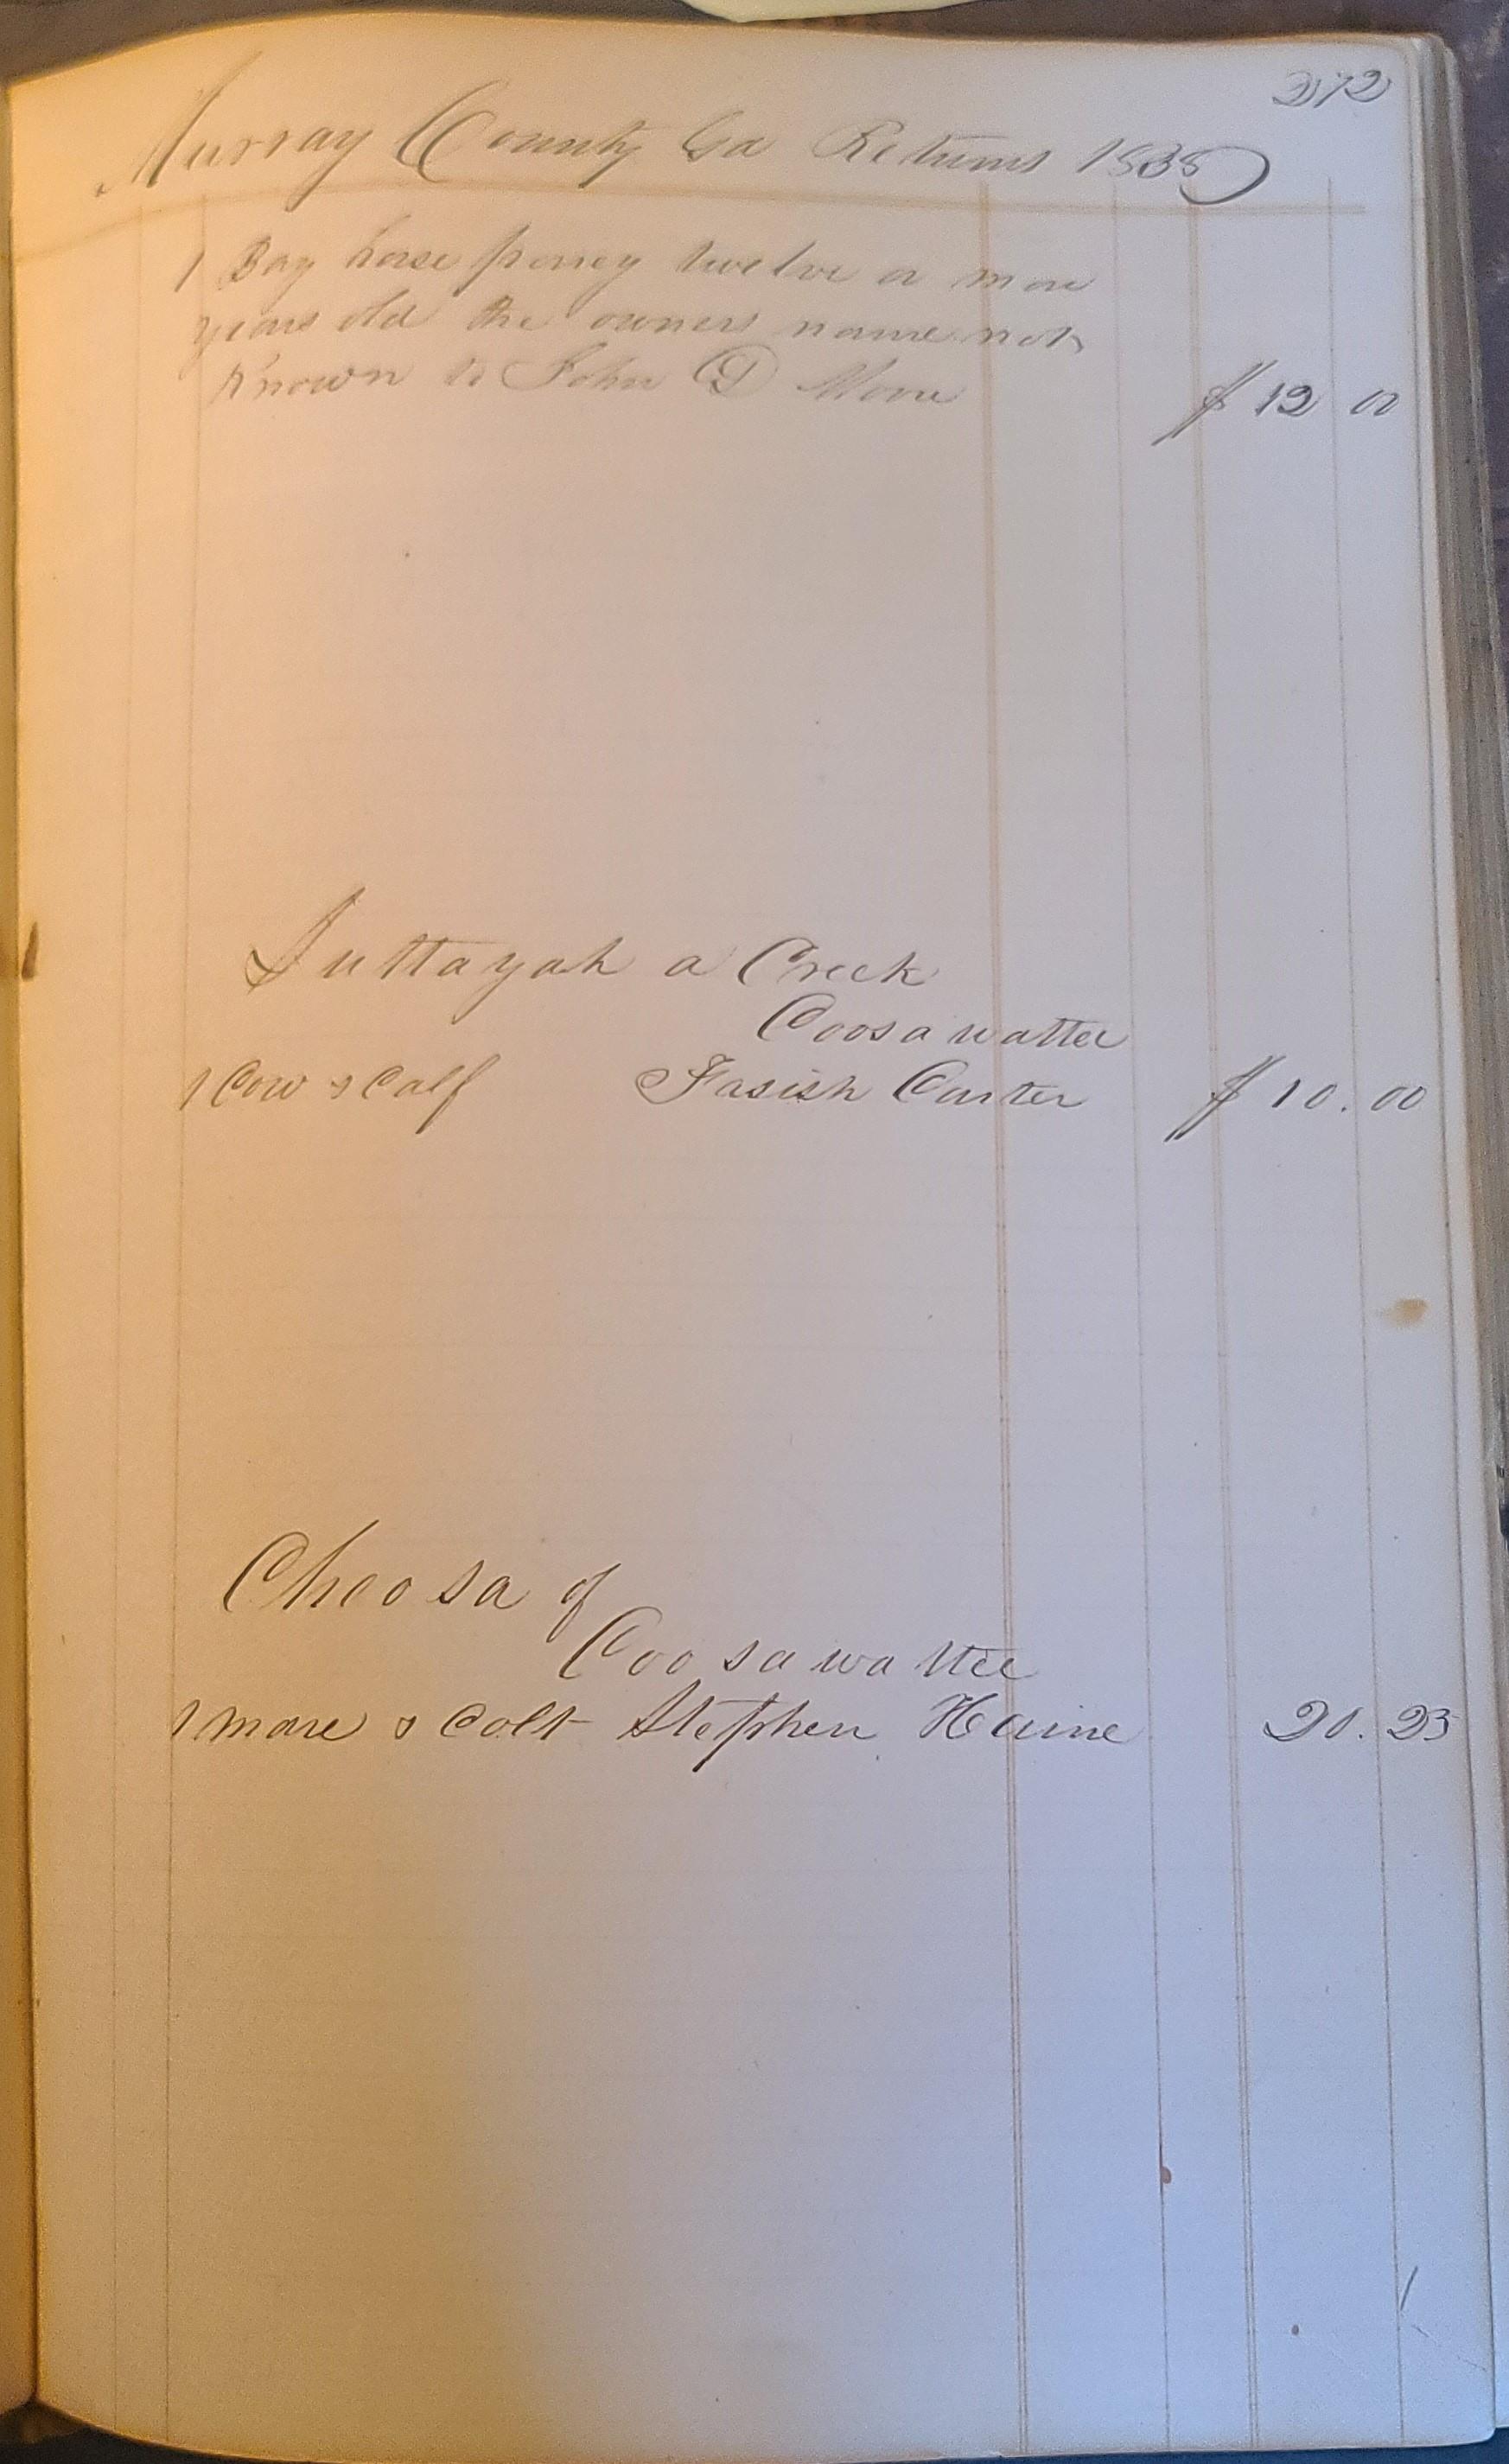 272
Murray County Ga Returns 1838
1 Bay horse poney twelve or more
years old the owners name not
Known to John D Moore $12 00
Suttayah a Creek
Coosawattee
1 Cow & Calf Farish Carter $10.00
Choosa of
Coosawattee
1 mare & Colt Stephen 20.23